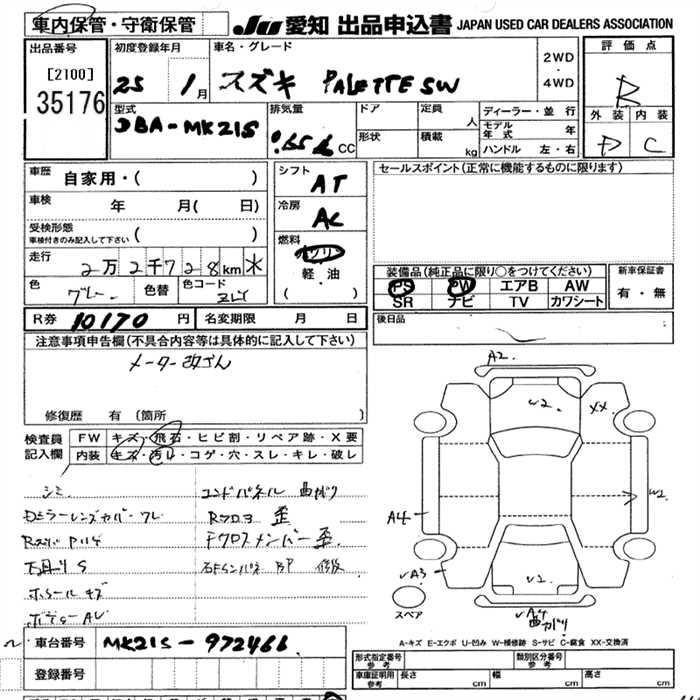 車内保管・守衛保管
JU 愛知 出品申込書 JAPAN USED CAR DEALERS ASSOCIATION
出品番号
[2100]
35176
初度登録年月
25 1月
車名・グレード
スズキ PALETTE SW
2WD
・
4WD
評価点
R
外装 内装
D C
型式
DBA-MK21S
排気量
CC
ドア
形状
定員
人
積載
kg
ディーラー・並行
モデル年式 年
ハンドル 左・右
車歴
自家用・( )
車検
年 月( 日)
受検形態
車検付きのみ記入して下さい
( )
走行
2万2千728km
色
グレー
色替
色コード
ZLY
R券 10170円
名変期限 月 日
シフト
AT
冷房
AC
燃料
ガソリン
軽・油
( )
セールスポイント(正常に機能するものに限ります)
装備品(純正品に限り○をつけてください)
PS PW エアB AW
SR ナビ TV カワシート
新車保証書
有・無
後日品
注意事項申告欄(不具合内容等は具体的に記入して下さい)
メーター改ざん
修復歴 有 (箇所
検査員
記入欄
FW キズ・飛石・ヒビ割・リペア跡・X要
内装 キズ・汚レ・コゲ・穴・スレ・キレ・破レ
シミ
コンドパネル 曲がり
Rクロス 歪
Fクロスメンバー 歪
S
ホイール キズ
車台番号 MK21S-972466
登録番号
A2
W2
XX
W2
A4
√A3
√1
√A4
曲がり
スペア
A-キズ E-エクボ U-凹み W-補修跡 S-サビ C-腐食 XX-交換済
形式指定番号
参考
類別区分番号
参考
車庫証明用
参考
長さ cm
幅 cm
高さ cm